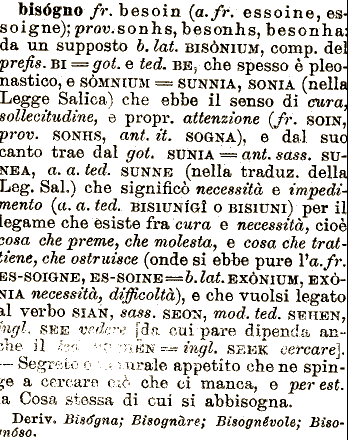 bisógno fr. besoin (a. fr. essoine, es-
soigne); prov. sonhs, besonhs, besonha:
da un supposto b. lat. BISÒNIUM, comp. del
prefis. BI = got. e ted. BE, che spesso è pleo-
nastico, e SÒMNIUM = SUNNIA, SONIA (nella
Legge Salica) che ebbe il senso di cura,
sollecitudine, e propr. attenzione (fr. SOIN,
prov. SONHS, ant. it. SOGNA), e dal suo
canto trae dal got. SUNIA = ant. sass. SU-
NEA, a. a. ted. SUNNE (nella traduz. della
Leg. Sal.) che significò necessità e impedi-
mento (a. a. ted. BISIUNÍGÎ O BISIUNI) per il
legame che esiste fra cura e necessità, cioè
cosa che preme, che molesta, e cosa che trat-
tiene, che ostruisce (onde si ebbe pure l'a. fr.
ES-SOIGNE, ES-SOINE = b. lat. EXÒNIUM, EXÒ-
NIA necessità, difficoltà), e che vuolsi legato
al verbo SIAN, sass. SEON, mod. ted. SEHEN,
ingl. SEE vedere [da cui pare dipenda an-
che il ted. = ingl. SEEK cercare].
— Segreto e naturale appetito che ne spin-
ge a cercare ciò che ci manca, e per est.
la Cosa stessa di cui si abbisogna.
Deriv. Bisógna; Bisognàre; Bisognévole; Biso-
gnóso.